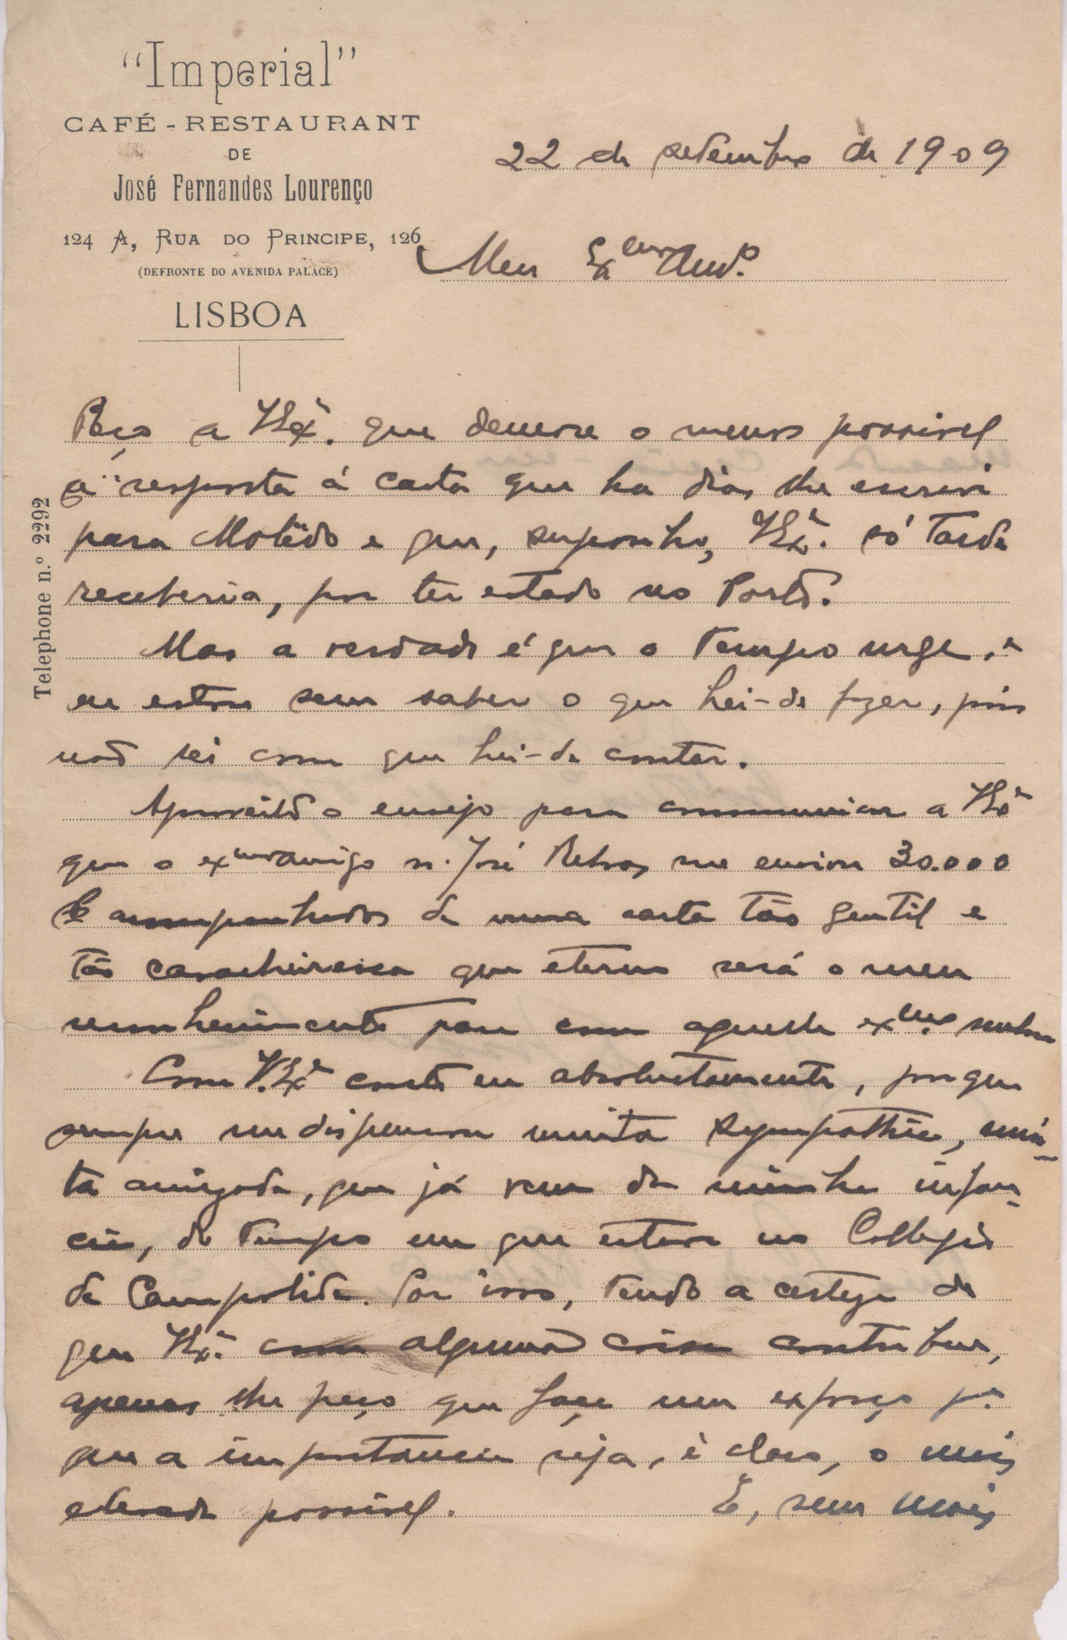 "Imperial"
CAFÉ-RESTAURANT
DE
José Fernandes Lourenço
124 A, RUA DO PRINCIPE, 126
(DEFRONTE DO AVENIDA PALACE)
LISBOA
Telephone n.º 2292
22 de setembro de 1909
Meu Exmo Amº.
Peço a V. Exª. que demore o menos possivel
a resposta á carta que ha dias lhe escrevi
para Molêdo e que, supponho, V. Exª. só tarde
receberia, por ter estado no Porto.
Mas a verdade é que o tempo urge, e
eu estou sem saber o que hei-de fazer, pois
não sei com que hei-de contar.
Aproveito o ensejo para communicar a V. Exª
que o exmo amigo sr. José me enviou 30.000
acompanhados de uma carta tão gentil e
tão cavalheiresca que eterno será o meu
reconhecimento para com aquelle exmo. senhor
Com V. Exª conto eu absolutamente, porque
sempre me dispensou muita sympathia, mui-
ta amizade, que já vem da minha infan-
cia, do tempo em que estava no Collegio
de Campolide. Por isso, tendo a certeza de
que V. Exª. com alguma coisa contribue,
apenas lhe peço que faça um esforço pª.
que a importancia seja, é claro, o mais
elevada possivel. E, sem mais